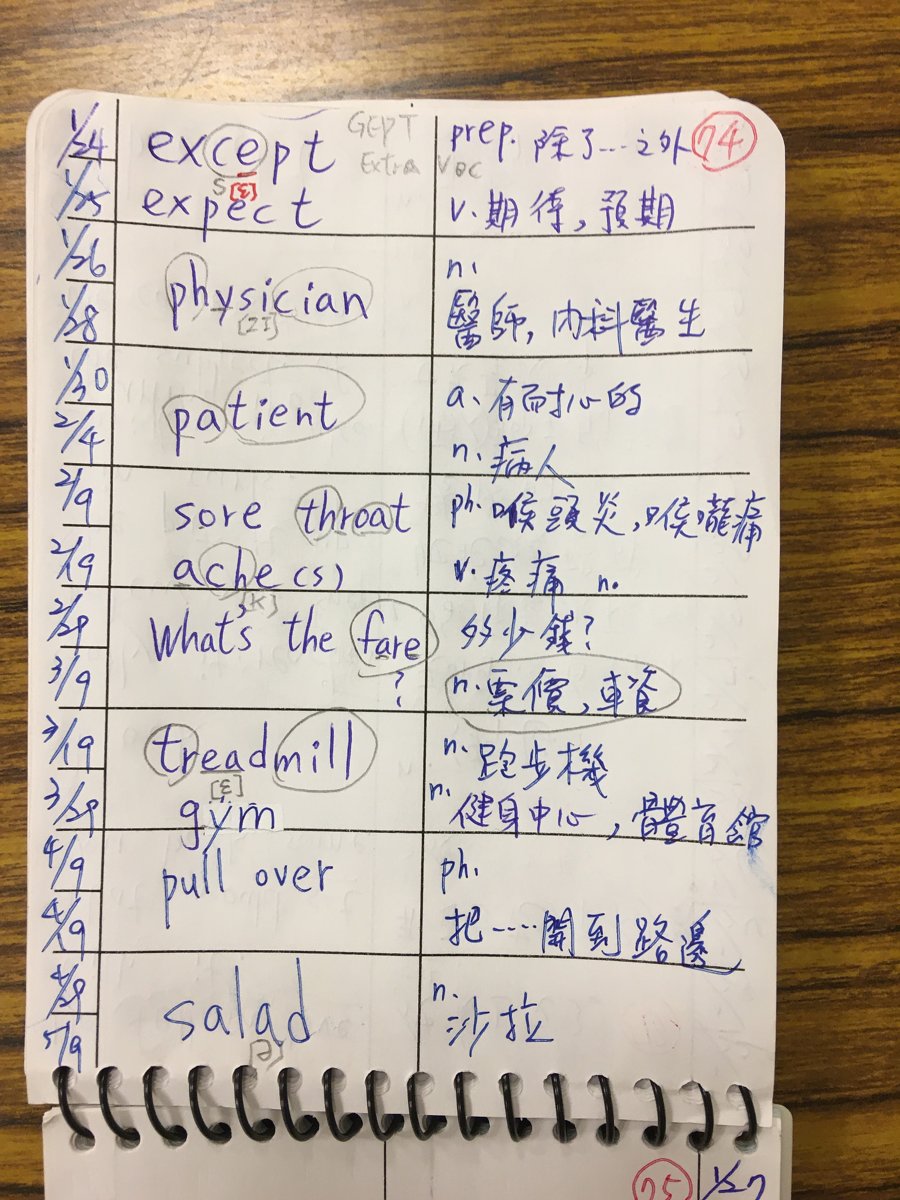 1/24 except GEPT prep. 除了…之外 74
s [ɛ] Extra Voc
1/25 expect v. 期待, 預期
1/26 physician n.
1/28 [zɪ] 醫師, 內科醫生
1/30 patient a. 有耐心的
2/4 n. 病人
2/9 sore throat ph. 喉頭炎, 喉嚨痛
2/19 ache(s) v. 疼痛 n.
[k]
2/29 What's the fare 多少錢?
3/9 ? n. 票價, 車資
3/19 treadmill n. 跑步機
[ɛ]
3/29 gym n. 健身中心, 體育館
4/9 pull over ph.
4/19 把……開到路邊
4/29 salad n.
5/9 [ə] 沙拉
75 1/27